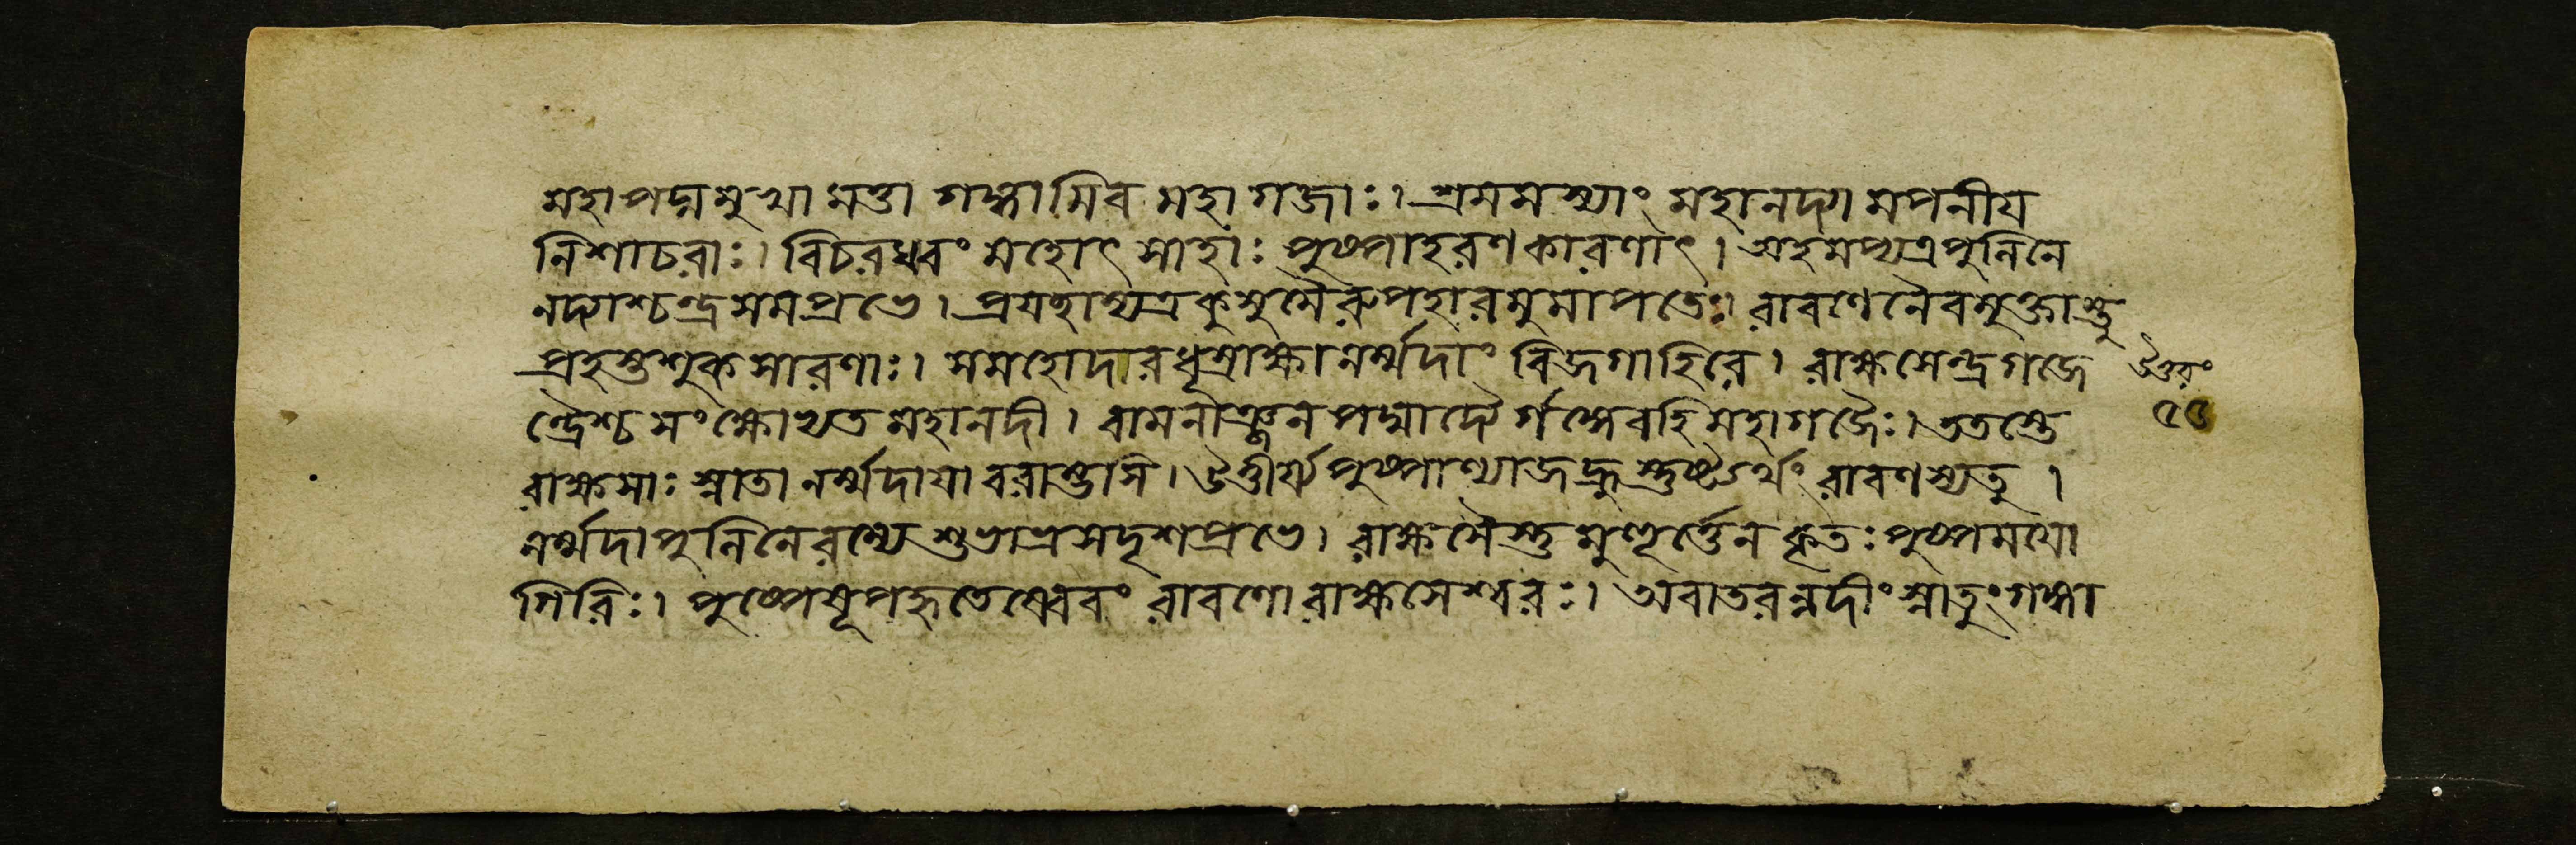 মহাপদ্মমুখা মত্তা গঙ্গামিব মহাগজাঃ। শ্রমমস্যাং মহানদ্যামপনীয
নিশাচরাঃ। বিচরধ্বং মহোৎসাহাঃ পুষ্পাহরণকারণাৎ। অহমপ্যত্রপুলিনে
নদ্যাশ্চন্দ্রসমপ্রভে। প্রযছাম্যত্রকুসুমৈরুপহারমুমাপতেঃ। রাবণেনৈবমুক্তাস্তু
প্রহস্তশুকসারণাঃ। সমহোদারধূম্রাক্ষানর্ম্মদাং বিজগাহিরে। রাক্ষসেন্দ্রগজে
ন্দ্রৈশ্চ সংক্ষোভ্যত মহানদী। বামনাঞ্জনপদ্মাদ্যৈর্গঙ্গেবহিমহাগজৈঃ। ততস্তে
রাক্ষসাঃ স্নাতা নর্ম্মদাযা বরাম্ভসি। উত্তীর্য্যপুষ্পাণ্যাজহ্রুস্তুষ্ট্যর্থং রাবণস্যতু।
নর্ম্মদাপুলিনেরম্যে শুভ্রাভ্রসদৃশপ্রভে। রাক্ষসৈস্তুমুহূর্ত্তেন কৃতঃপুষ্পমযো
গিরিঃ। পুষ্পেষূপহৃতেষ্বেবং রাবণো রাক্ষসেশ্বরঃ। অবাতরন্নদীং স্নাতুংগঙ্গা
উত্তরং
৫৫